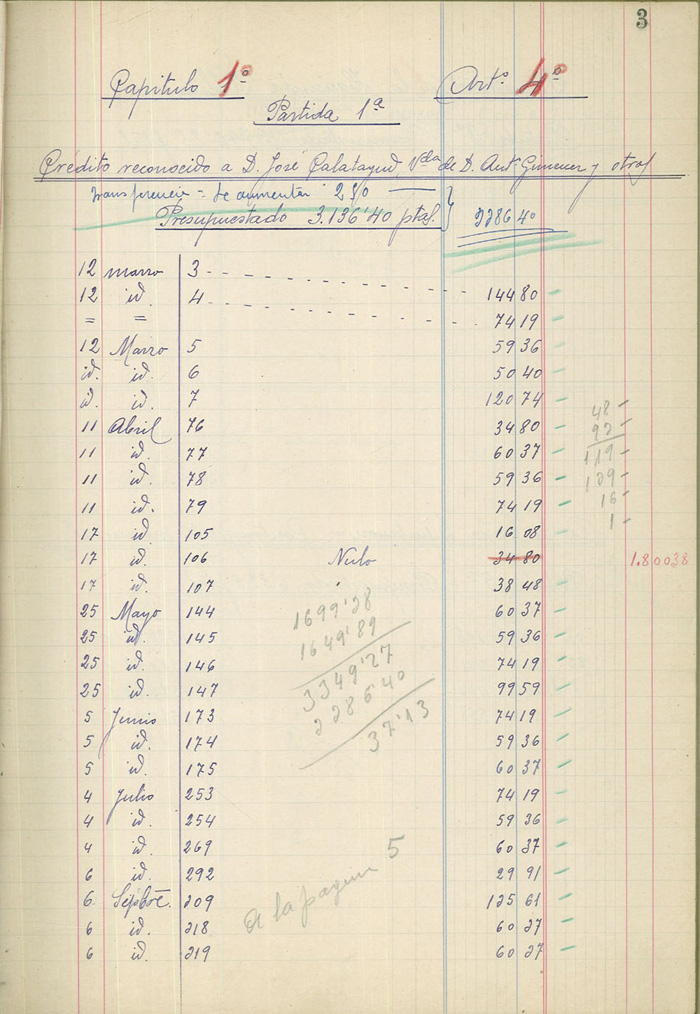 3
Capitulo 1º Artº 4º
Partida 1ª
Crédito reconocido a D. José Calatayud, Vda de D. Antº Gimenez y otros
transferencia = Se aumenta 250 —
Presupuestado 3.136'40 ptas.
12 marzo 3
12 id. 4 144 80
= = 74 19
12 Marzo 5 59 36
id. id. 6 50 40
id. id. 7 120 74
48
11 Abril 76 34 80
92
11 id. 77 60 37
119
11 id. 78 59 36
109
11 id. 79 74 19
16
17 id. 105 16 08
1
17 id. 106 Nulo 34 80 1.800 38
17 id. 107 38 48
25 Mayo 144 60 37
1699'28
25 id. 145 59 36
1649'89
25 id. 146 74 19
3349'27
25 id. 147 99 59
2286'40
5 Junio 173 74 19
37'13
5 id. 174 59 36
5 id. 175 60 37
4 Julio 253 74 19
4 id. 254 59 36
4 id. 269 60 37
6 id. 292 29 91
a la pagina 5
6 Sepbre. 209 125 61
6 id. 218 60 27
6 id. 219 60 27